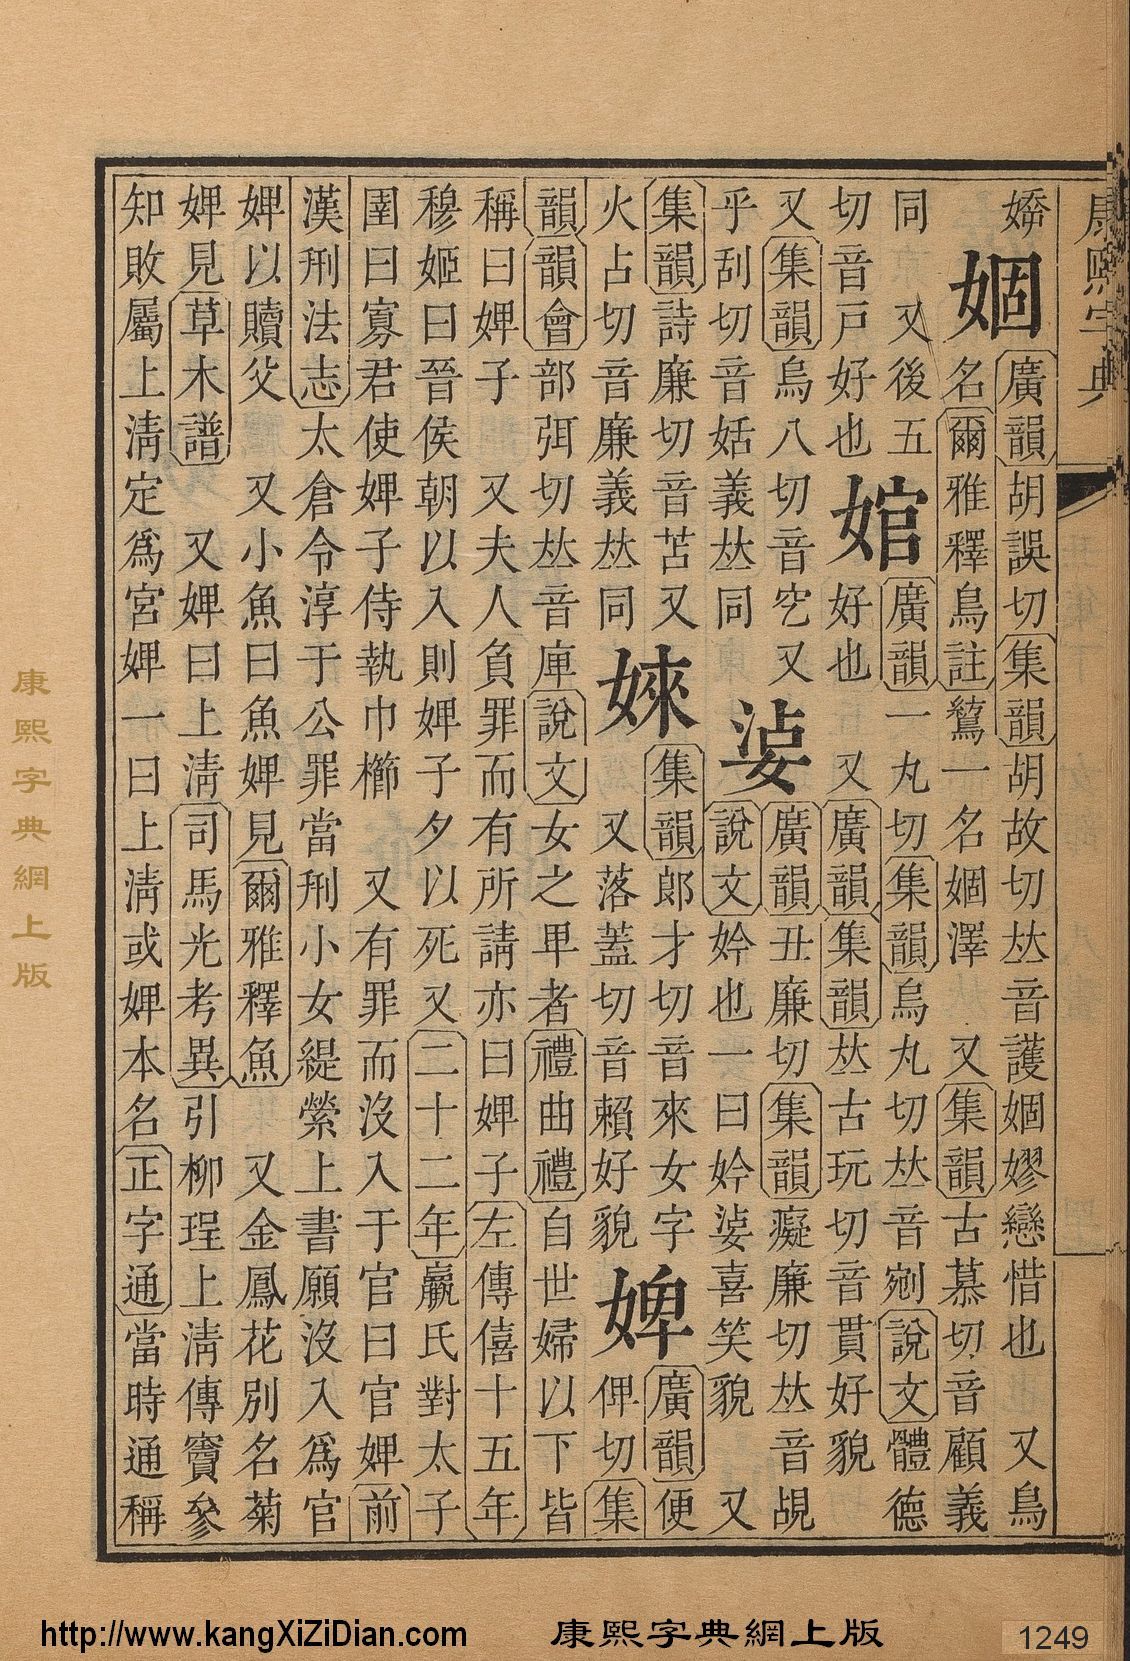 康熙字典
婟廣韻胡誤切集韻胡故切𠀤音護婟嫪戀惜也 又鳥
名爾雅釋鳥註鶭一名婟澤 又集韻古慕切音顧義
同 又後五婠廣韻一丸切集韻烏丸切𠀤音剜說文體德
切音戸好也 好也 又廣韻集韻𠀤古玩切音貫好貌
又集韻烏八切音穵又 廣韻丑廉切集韻癡廉切𠀤音覘
乎刮切音姡義𠀤同 說文妗也一曰妗 喜笑貌 又
集韻詩廉切音苫又婡集韻郎才切音來女字婢廣韻便
火占切音廉義𠀤同 又落蓋切音賴好貌 俾切集
韻韻會部弭切𠀤音庳說文女之𤰞者禮曲禮自世婦以下皆
稱曰婢子 又夫人負罪而有所請亦曰婢子左傳僖十五年
穆姬曰晉侯朝以入則婢子夕以死又二十二年嬴氏對太子
圉曰寡君使婢子侍執巾櫛 又有罪而沒入于官曰官婢前
漢刑法志太倉令淳于公罪當刑小女緹縈上書願沒入爲官
婢以贖父 又小魚曰魚婢見爾雅釋魚 又金鳳花別名菊
婢見草木譜 又婢曰上淸司馬光考異引柳珵上淸傳竇參
知敗屬上淸定爲宮婢一曰上淸或婢本名正字通當時通稱
康熙字典網上版
http://www.kangXiZiDian.com 康熙字典網上版 1249